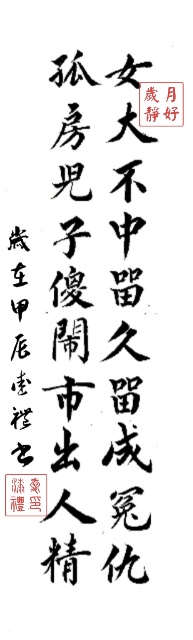 月好
歲靜
女大不中留久留成冤仇
孤房児子傻鬧市出人精
歲在甲辰
禮书